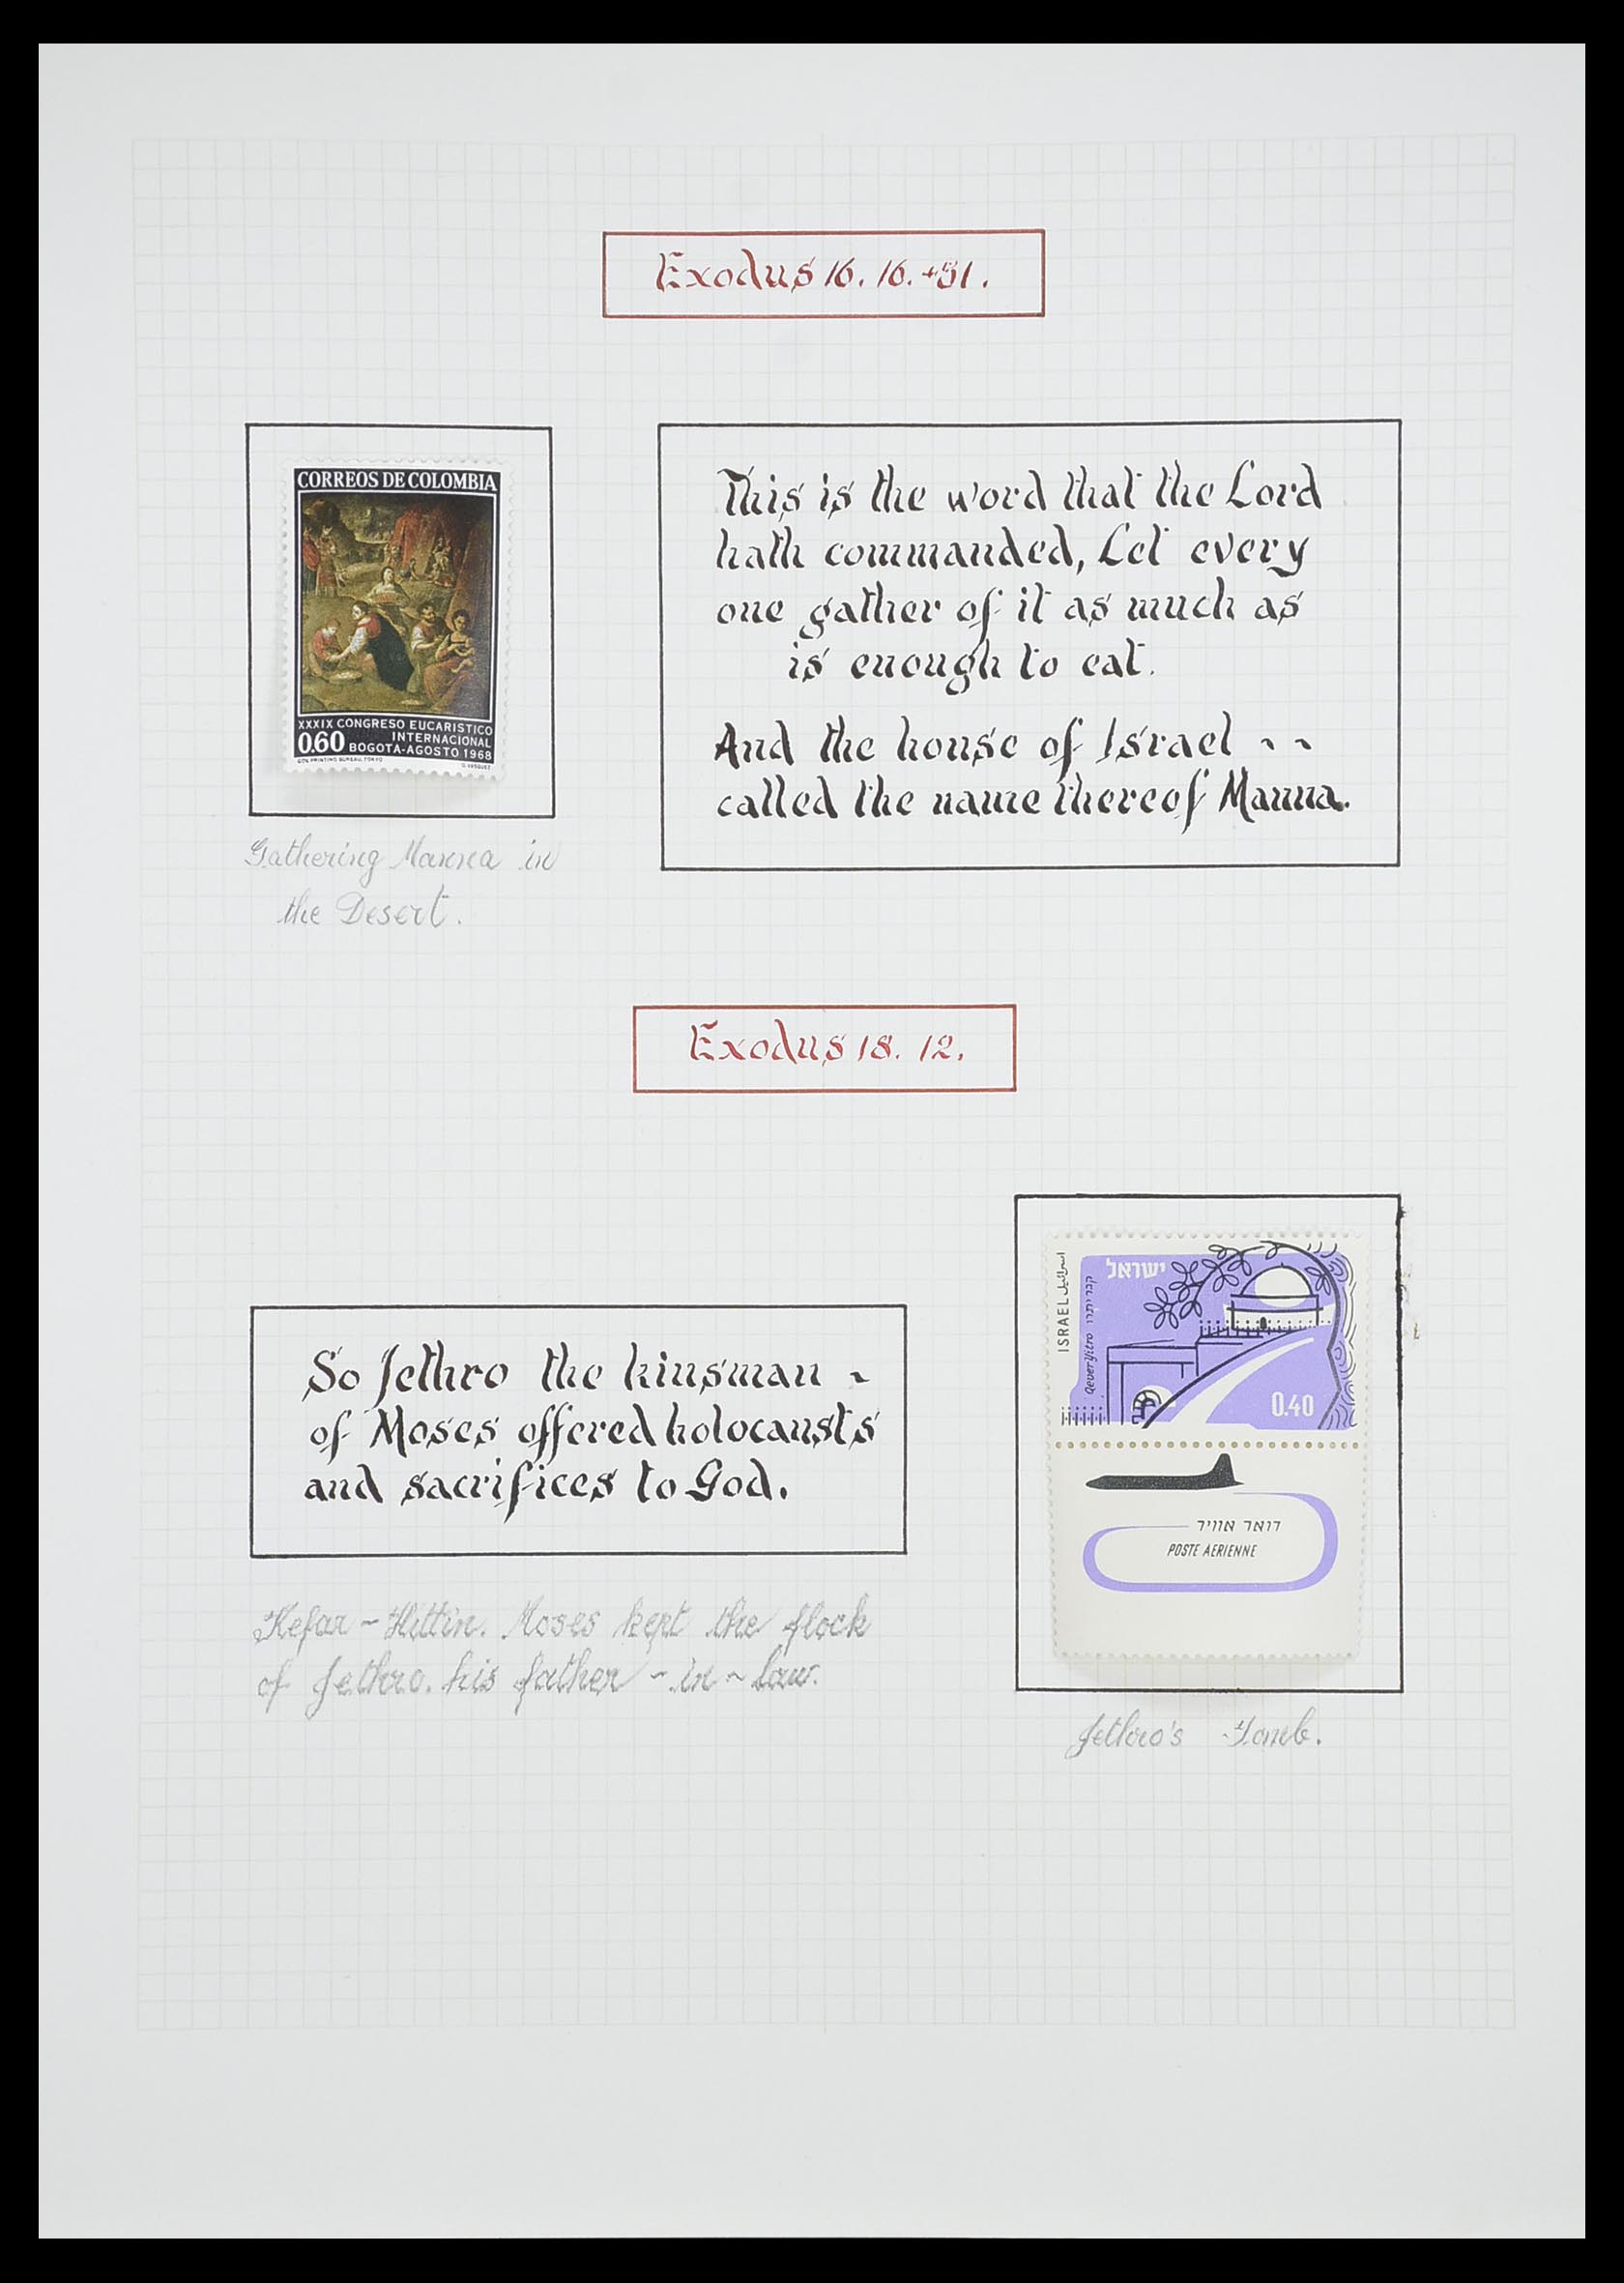 Exodus 16. 16. +31.
CORREOS DE COLOMBIA
XXXIX CONGRESO EUCARISTICO
INTERNACIONAL
0.60 BOGOTA-AGOSTO 1968
GOV. PRINTING BUREAU, TOKYO
G. VASQUEZ
This is the word that the Lord
hath commanded, Let every
one gather of it as much as
is enough to eat.
And the house of Israel - -
called the name thereof Manna.
Gathering Manna in
the Desert.
Exodus 18. 12.
ישראל
ISRAEL اسرائيل
Qever Yitro קבר יתרו
0.40
דואר אוויר
POSTE AERIENNE
So Jethro the kinsman -
of Moses offered holocausts
and sacrifices to God.
Kefar - Hittin. Moses kept the flock
of Jethro. his father - in - Law.
Jethro's Tomb.